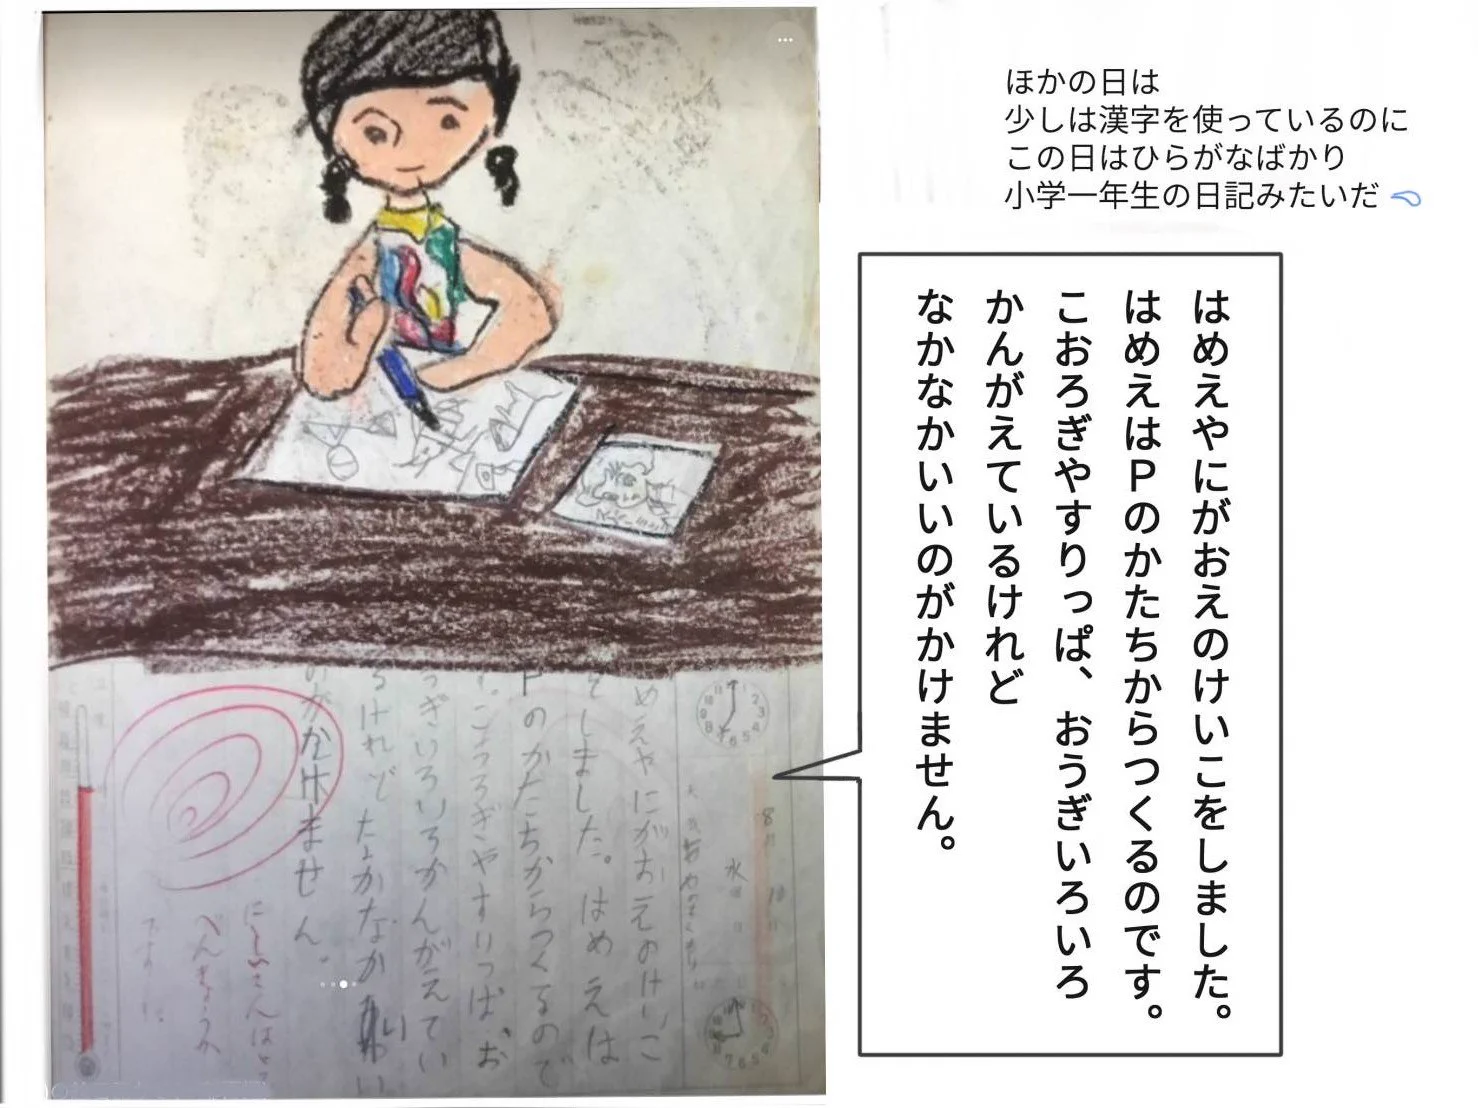 ほかの日は
少しは漢字を使っているのに
この日はひらがなばかり
小学一年生の日記みたいだ
はめえやにがおえのけいこをしました。
はめえはPのかたちからつくるのです。
こおろぎやすりっぱ、おうぎいろいろ
かんがえているけれど
なかなかいいのがかけません。
8月10日
水
めえやにがおえのけいこ
をしました。はめえは
Pのかたちからつくるので
す。こおろぎやすりっぱ、お
うぎいろいろかんがえてい
るけれど、なかなかいい
のがかけません。